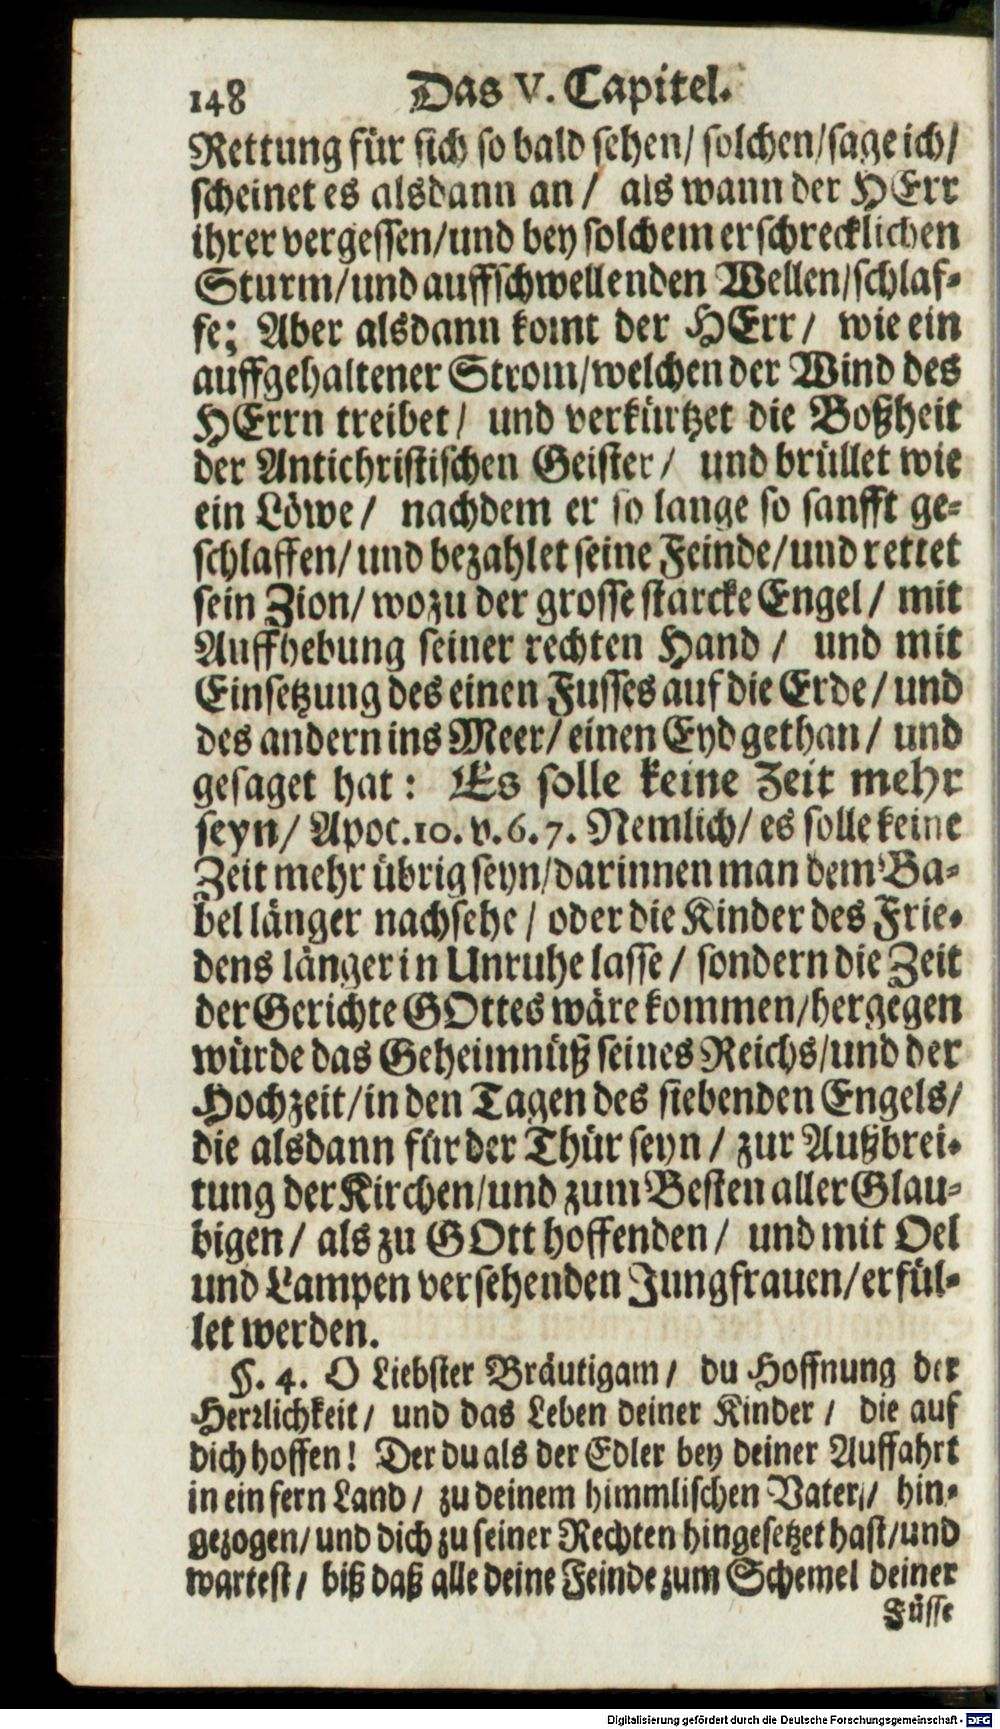 148 Das V. Capitel.
Rettung für sich so bald sehen/ solchen/sage ich/
scheinet es alsdann an/ als wann der HErr
ihrer vergessen/und bey solchem erschrecklichen
Sturm/und auffschwellenden Wellen/schlaf-
fe; Aber alsdann komt der HErr/ wie ein
auffgehaltener Strom/welchen der Wind des
HErrn treibet/ und verkürtzet die Boßheit
der Antichristischen Geister/ und brüllet wie
ein Löwe/ nachdem er so lange so sanfft ge-
schlaffen/und bezahlet seine Feinde/und rettet
sein Zion/wozu der grosse starcke Engel/ mit
Auffhebung seiner rechten Hand/ und mit
Einsetzung des einen Fusses auf die Erde/und
des andern ins Meer/einen Eyd gethan/ und
gesaget hat: Es solle keine Zeit mehr
seyn/ Apoc.10. v.6.7. Nemlich/es solle keine
Zeit mehr übrig seyn/darinnen man dem Ba-
bel länger nachsehe/ oder die Kinder des Frie-
dens länger in Unruhe lasse/ sondern die Zeit
der Gerichte GOttes wäre kommen/hergegen
würde das Geheimnüß seines Reichs/und der
Hochzeit/in den Tagen des siebenden Engels/
die alsdann für der Thür seyn/ zur Außbrei-
tung der Kirchen/und zum Besten aller Glau-
bigen/ als zu GOtt hoffenden/ und mit Oel
und Lampen versehenden Jungfrauen/erfül-
let werden.
§. 4. O Liebster Bräutigam/ du Hoffnung der
Herrlichkeit/ und das Leben deiner Kinder/ die auf
dich hoffen! Der du als der Edler bey deiner Auffahrt
in ein fern Land/ zu deinem himmlischen Vater/ hin-
gezogen/und dich zu seiner Rechten hingesetzet hast/und
wartest/ biß daß alle deine Feinde zum Schemel deiner
Füsse
Digitalisierung gefördert durch die Deutsche Forschungsgemeinschaft - DFG